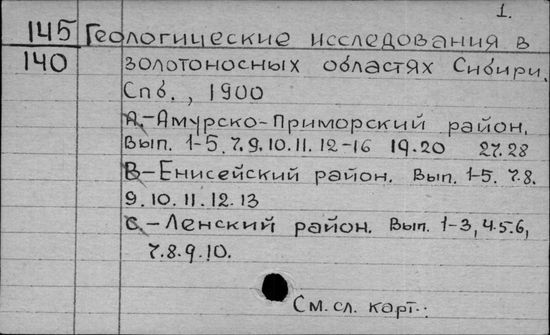 1.
145 Геологические исследования в
140 золотоносных областях Сибири.
Спб., 1900
А.-Амурско-Приморский район.
Вып. 1-5. 7. 9. 10. 11. 12-16 19. 20 27. 28
В-Енисейский район. Вып. 1-5. 7. 8.
9. 10. 11. 12. 13
С.-Ленский район. Вып. 1-3, 4. 5. 6,
7. 8. 9. 10.
См. сл. карт.: